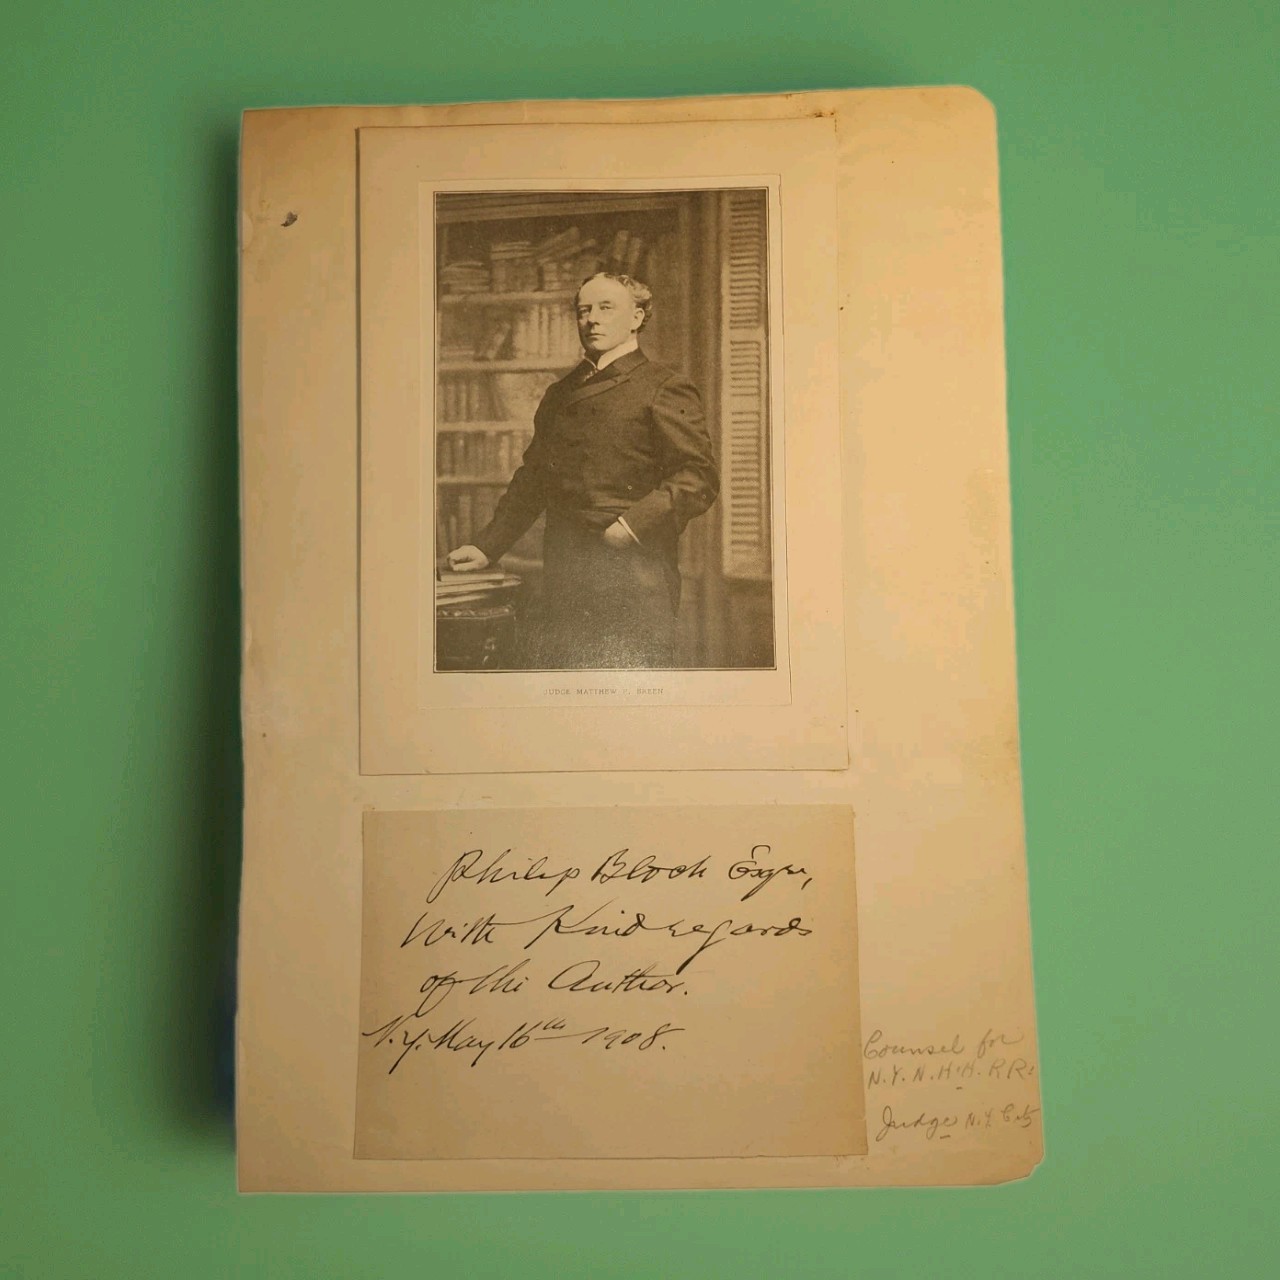 JUDGE MATTHEW P. BREEN
Philip Bloch Esqr,
With Kind regards
of the Author.
N.Y. May 16th 1908.
Counsel for
N.Y. N.H. H. RR.
Judge N.Y. City